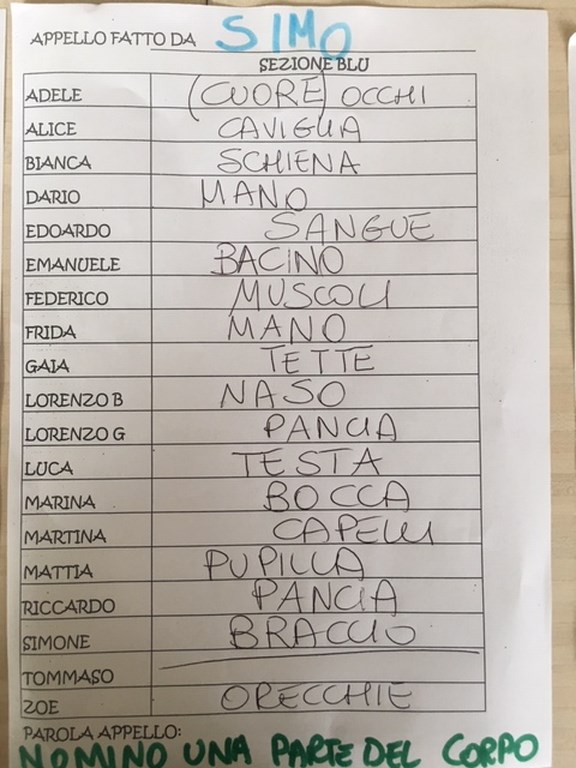 APPELLO FATTO DA SIMO
SEZIONE BLU
ADELE (CUORE) OCCHI
ALICE CAVIGLIA
BIANCA SCHIENA
DARIO MANO
EDOARDO SANGUE
EMANUELE BACINO
FEDERICO MUSCOLI
FRIDA MANO
GAIA TETTE
LORENZO B NASO
LORENZO G PANCIA
LUCA TESTA
MARINA BOCCA
MARTINA CAPELLI
MATTIA PUPILLA
RICCARDO PANCIA
SIMONE BRACCIO
TOMMASO
ZOE ORECCHIE
PAROLA APPELLO:
NOMINO UNA PARTE DEL CORPO